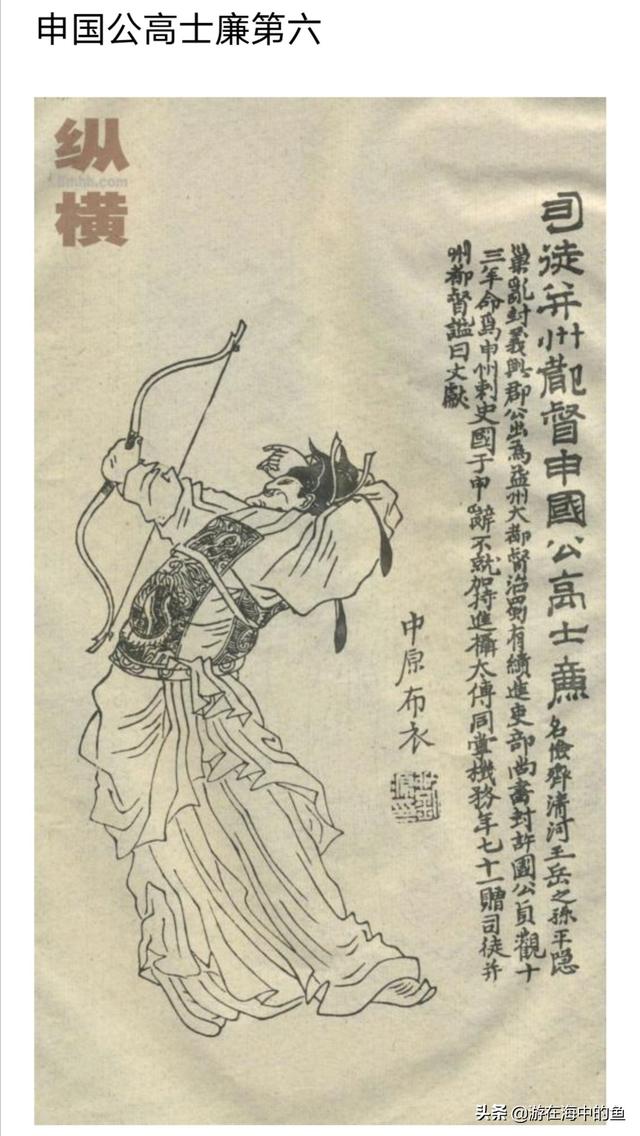 申国公高士廉第六
纵
横
司徒并州都督申國公高士廉名儉齊清河王岳之孫平隐
巢亂封義興郡公出為益州大都督治蜀有績進吏部尚書封許國公貞觀十
三年命為申州刺史國于申辭不就加持進攝太傅同掌機務年七十一贈司徒并
州都督謚曰文獻
中原布衣
头条 @游在海中的鱼